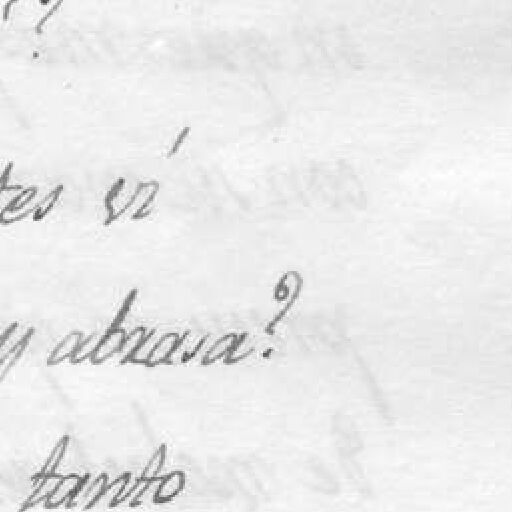 ?
tes ví
y abrasa?
tanto